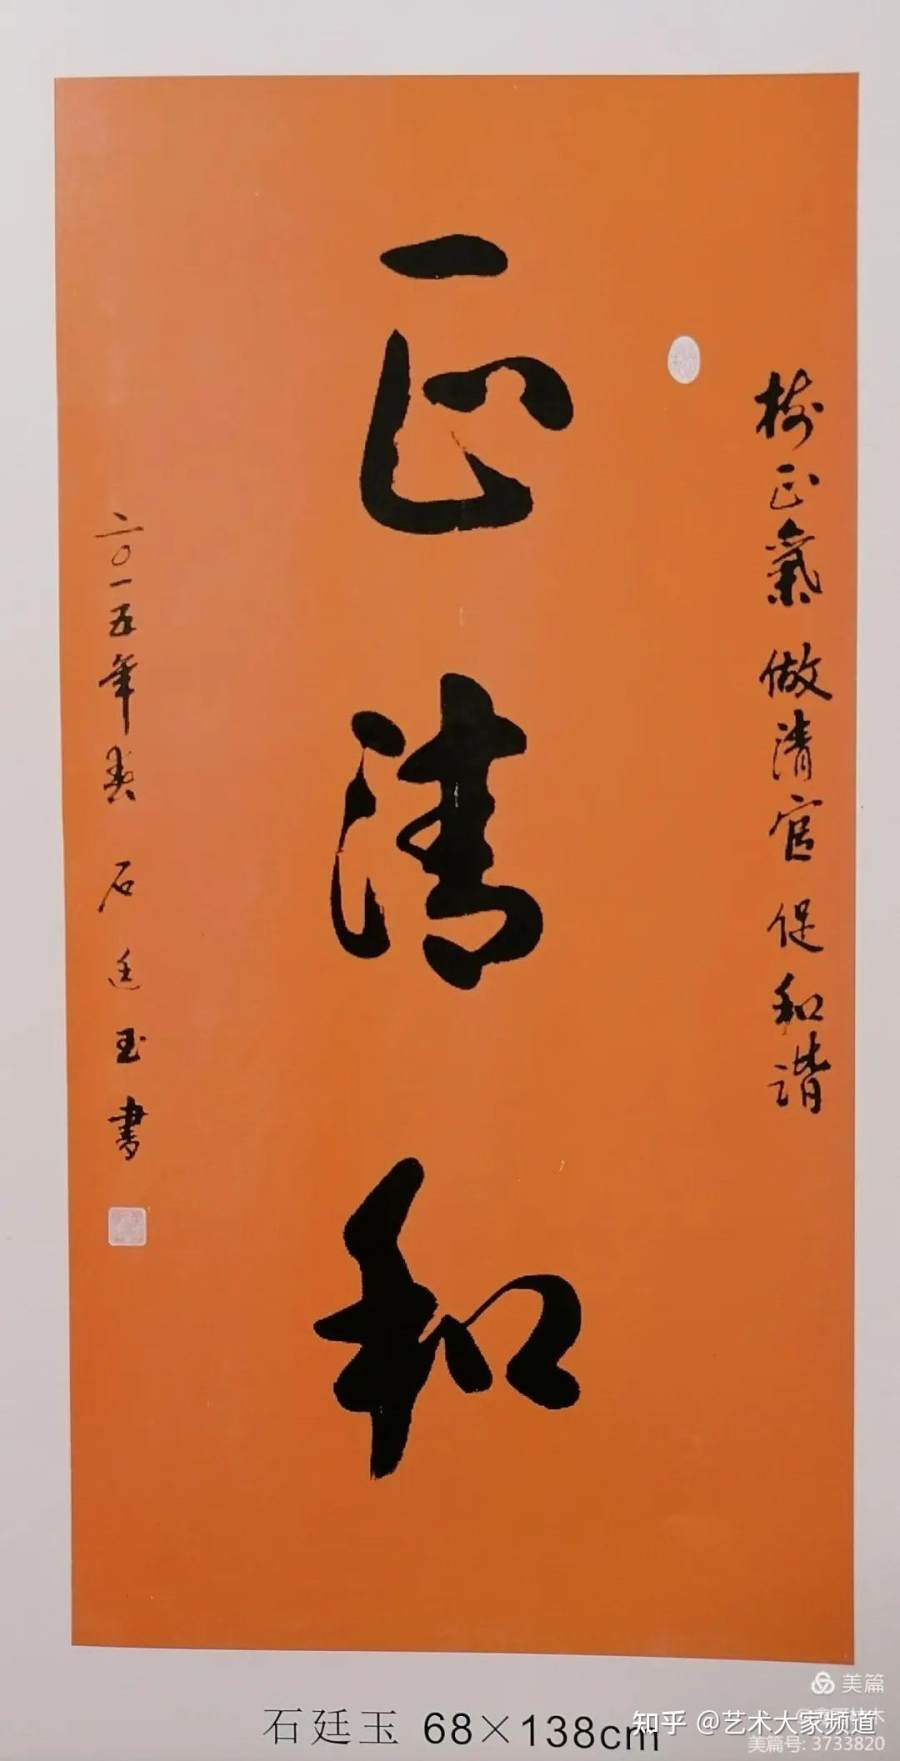 樹正氣 做清官 促和谐
正清和
二〇一五年春 石廷玉書
石廷玉 68×138cm
美篇
知乎 @艺术大家频道
美篇号: 3733820